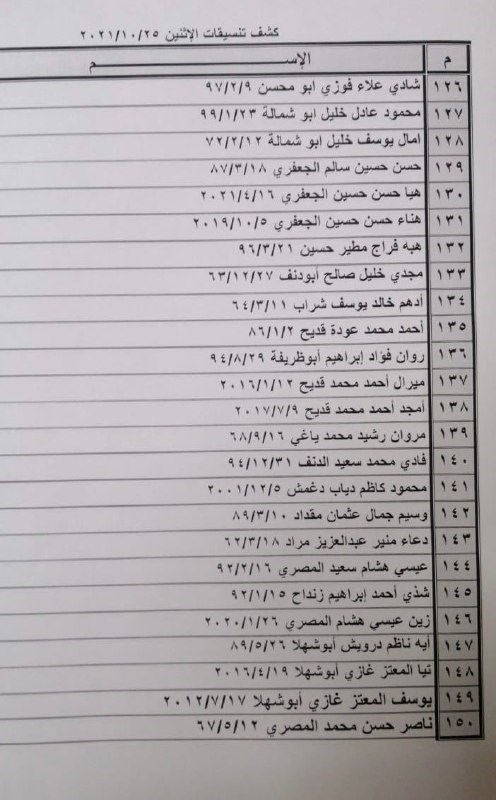 كشف تنسيقات الإثنين ٢٠٢١/١٠/٢٥
م الإســــــــــــــــم
١٢٦ شادي علاء فوزي ابو محسن ٩٧/٢/٩
١٢٧ محمود عادل خليل ابو شمالة ٩٩/١/٢٣
١٢٨ امال يوسف خليل ابو شمالة ٧٢/٢/١٢
١٢٩ حسن حسين سالم الجعفري ٨٧/٣/١٨
١٣٠ هيا حسن حسين الجعفري ٢٠٢١/٤/١٦
١٣١ هناء حسن حسين الجعفري ٢٠١٩/١٠/٥
١٣٢ هبه فراج مطير حسين ٩٦/٣/٢١
١٣٣ مجدي خليل صالح أبودنف ٦٣/١٢/٢٧
١٣٤ أدهم خالد يوسف شراب ٦٤/٣/١١
١٣٥ أحمد محمد عودة قديح ٨٦/١/٢
١٣٦ روان فؤاد إبراهيم أبوظريفة ٩٤/٨/٢٩
١٣٧ ميرال أحمد محمد قديح ٢٠١٦/١/١٢
١٣٨ أمجد أحمد محمد قديح ٢٠١٧/٧/٩
١٣٩ مروان رشيد محمد ياغي ٦٨/٩/١٦
١٤٠ فادي محمد سعيد الدنف ٩٤/١٢/٣١
١٤١ محمود كاظم دياب دغمش ٢٠٠١/١٢/٥
١٤٢ وسيم جمال عثمان مقداد ٨٩/٣/١٠
١٤٣ دعاء منير عبدالعزيز مراد ٦٢/٣/١٨
١٤٤ عيسي هشام سعيد المصري ٩٢/٢/١٦
١٤٥ شذي أحمد إبراهيم زنداح ٩٢/١/١٥
١٤٦ زين عيسي هشام المصري ٢٠٢٠/١/٢٦
١٤٧ أيه ناظم درويش أبوشهلا ٨٩/٥/٢٦
١٤٨ تيا المعتز غازي أبوشهلا ٢٠١٦/٤/١٩
١٤٩ يوسف المعتز غازي أبوشهلا ٢٠١٢/٧/١٧
١٥٠ ناصر حسن محمد المصري ٦٧/٥/١٢